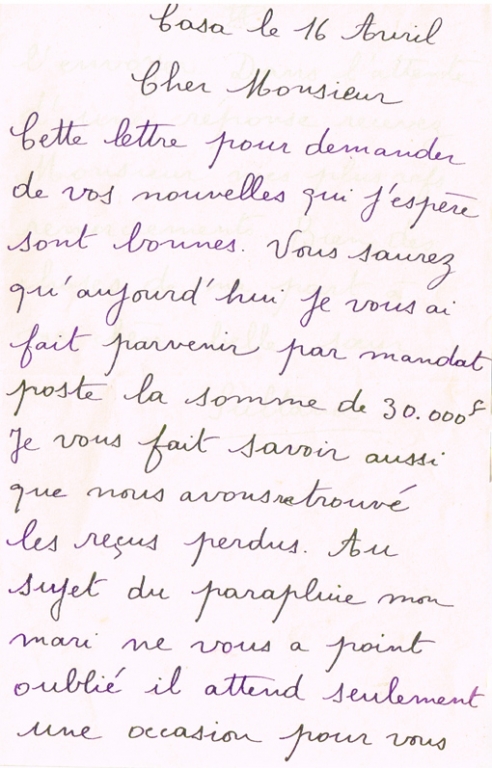 Casa le 16 Avril
Cher Monsieur
Cette lettre pour demander
de vos nouvelles qui j'espère
sont bonnes. Vous saurez
qu'aujourd'hui je vous ai
fait parvenir par mandat
poste la somme de 30.000F
Je vous fait savoir aussi
que nous avons retrouvé
les reçus perdus. Au
sujet du parapluie mon
mari ne vous a point
oublié il attend seulement
une occasion pour vous